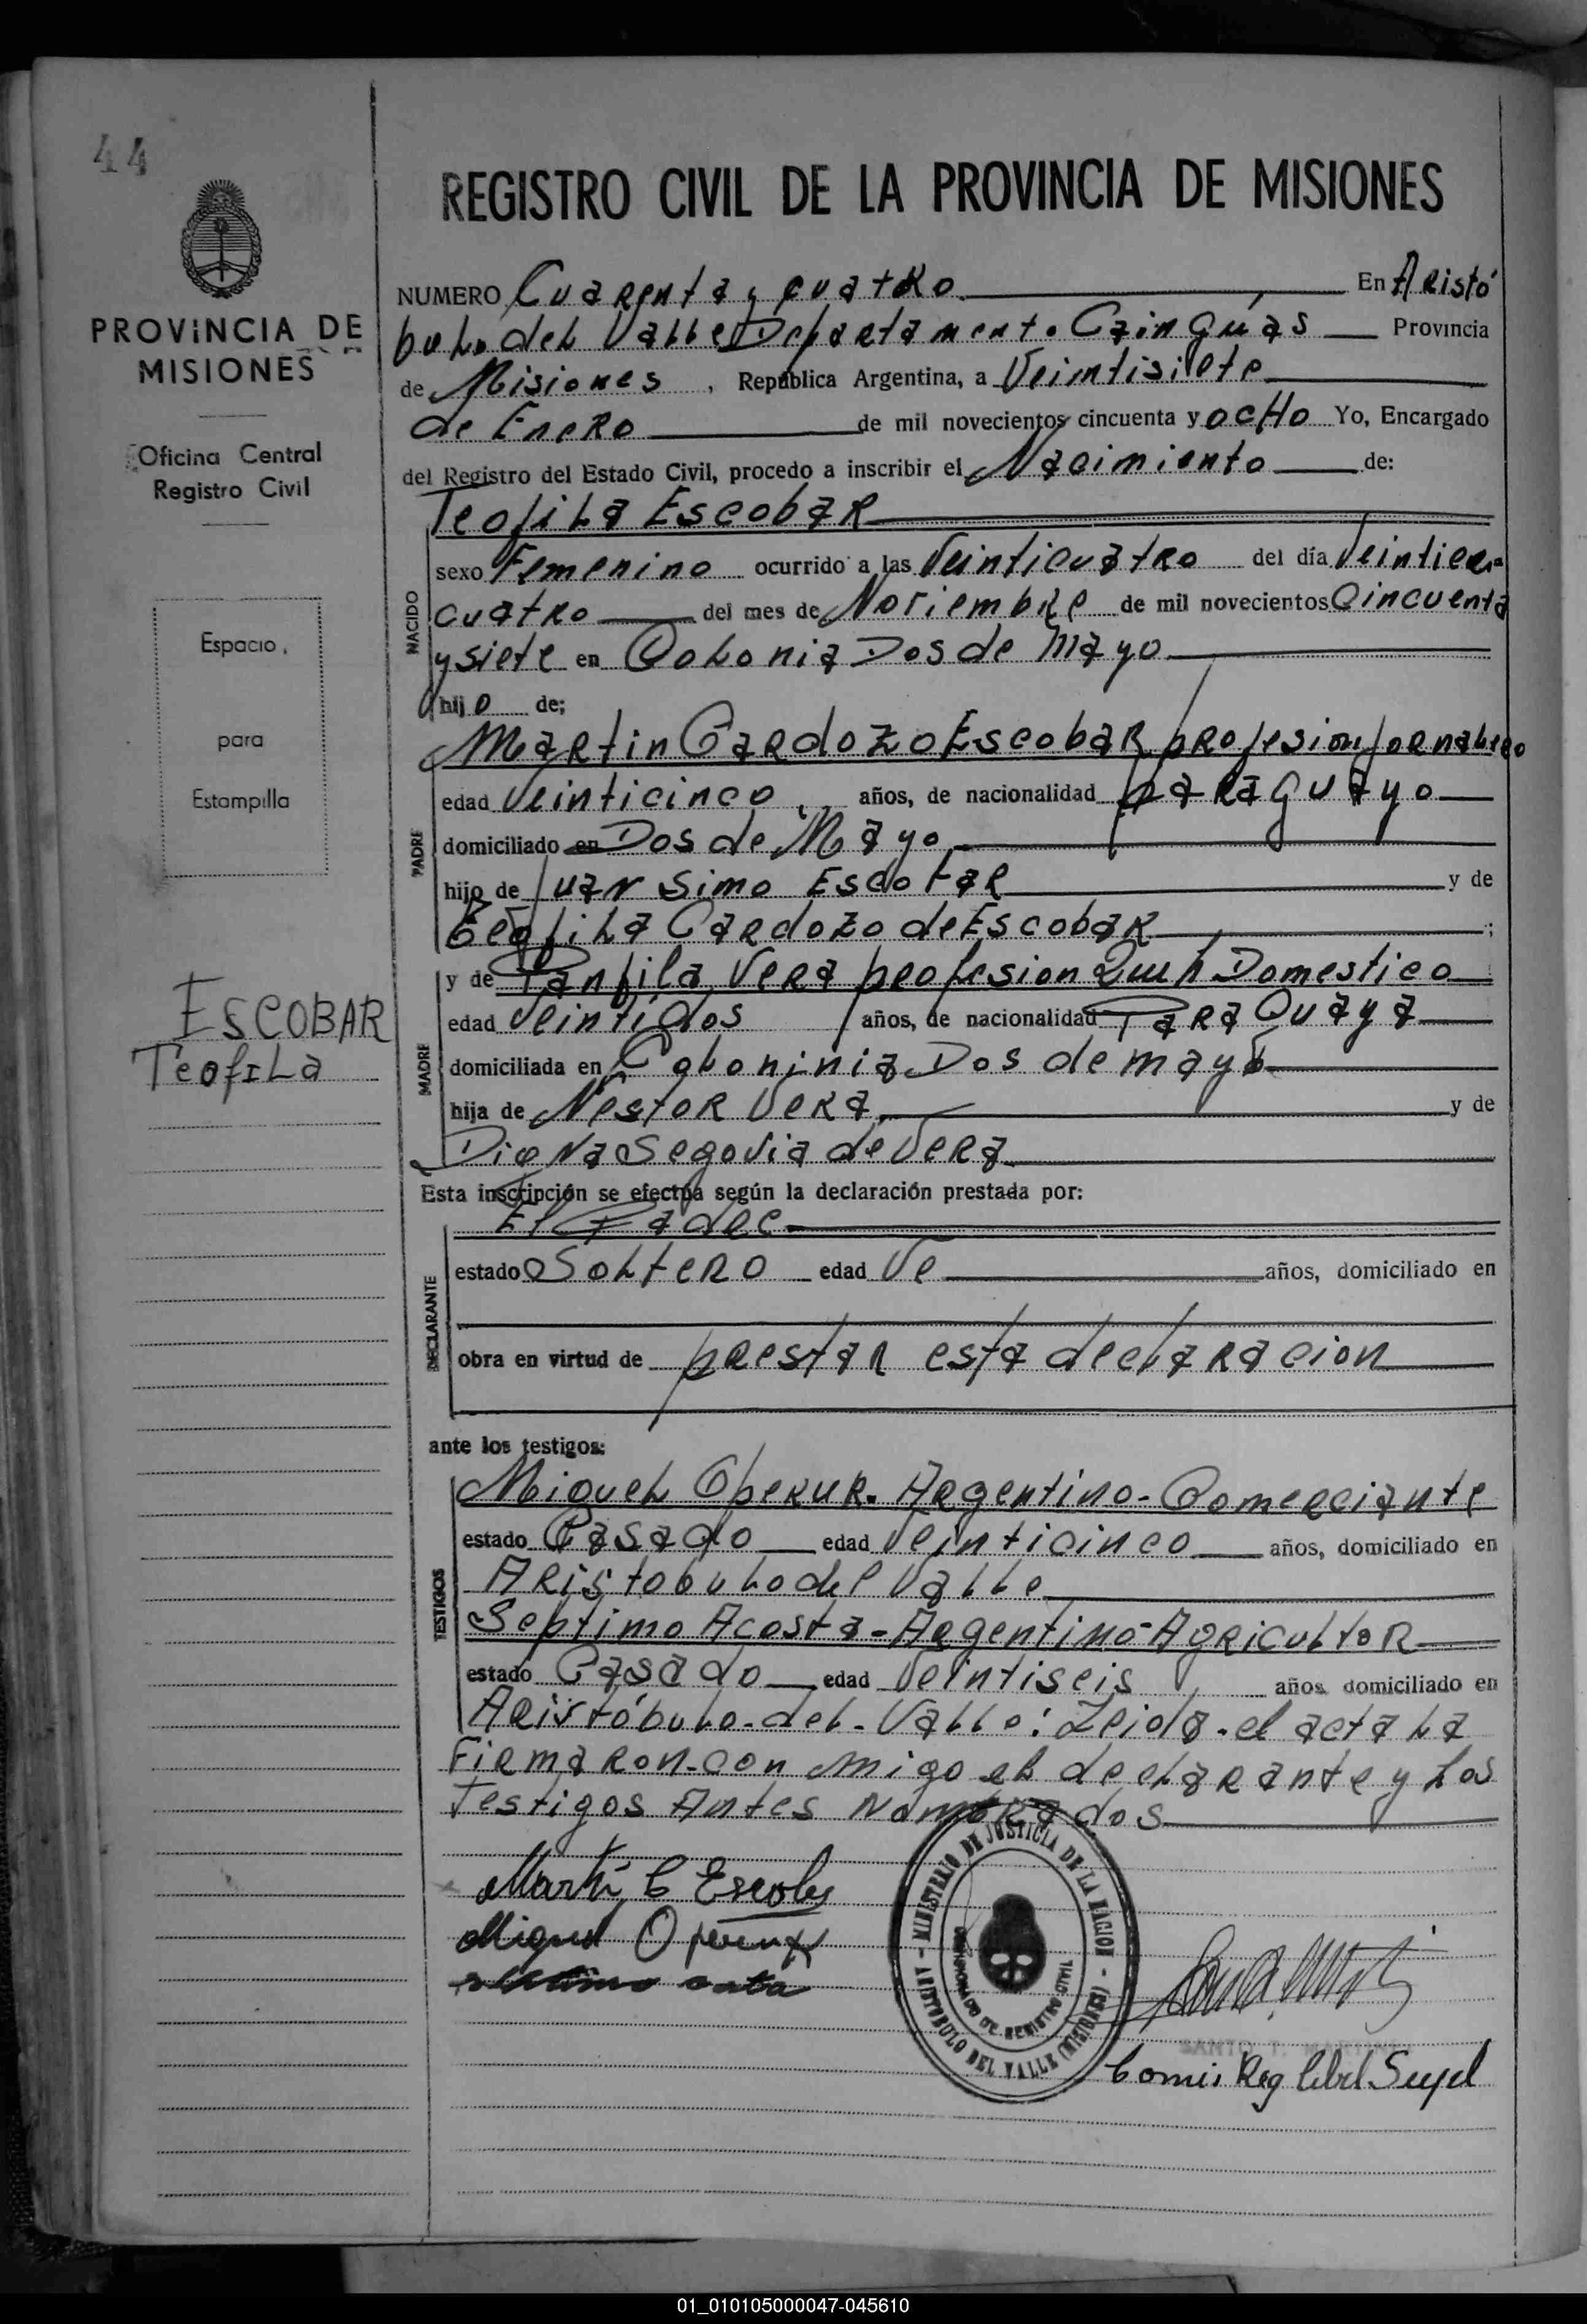 44
REGISTRO CIVIL DE LA PROVINCIA DE MISIONES
PROVINCIA DE
MISIONES
Oficina Central
Registro Civil
Espacio
para
Estampilla
ESCOBAR
Teofila
NUMERO Cuarenta y cuatro En Aristó
bulo del Valle Departamento Cainguás Provincia
de Misiones, República Argentina, a Veintisiete
de Enero de mil novecientos cincuenta y ocHo Yo, Encargado
del Registro del Estado Civil, procedo a inscribir el Nacimiento de:
Teofila Escobar
NACIDO
sexo Femenino ocurrido a las Veinticuatro del día
cuatro del mes de Noviembre de mil novecientos Cincuenta
y siete en Colonia Dos de Mayo
hijo de;
PADRE
Martin Cardozo Escobar profesion jornalero
edad Veinticinco años, de nacionalidad paraguayo
domiciliado en Dos de Mayo
hijo de Juan Simo y de
Teofila Cardozo de Escobar;
MADRE
y de Panfila Vera profesion Domestico
edad Veintidos años, de nacionalidad Paraguaya
domiciliada en Coloninia Dos de mayo
hija de Nestor Vera y de
Segovia de Vera
Esta inscripción se efectúa según la declaración prestada por:
DECLARANTE
El Padre
estado Soltero edad Ve años, domiciliado en
obra en virtud de prestar esta declaracion
ante los testigos:
TESTIGOS
Miguel Argentino - Comerciante
estado Casado edad Veinticinco años, domiciliado en
Aristobulo del Valle
Septimo Acosta - Argentino - Agricultor
estado Casado edad Veintiseis años domiciliado en
Aristóbulo - del - Valle: Leida - el acta la
Firmaron - con migo el declarante y Los
Testigos Antes Nombrados
Martin C Escobar
Miguel
MINISTERIO DE JUSTICIA DE LA NACION - ARISTOBULO DEL VALLE (MISIONES) -
DE REGISTRO CIVIL
SANTO T.
01_010105000047-045610